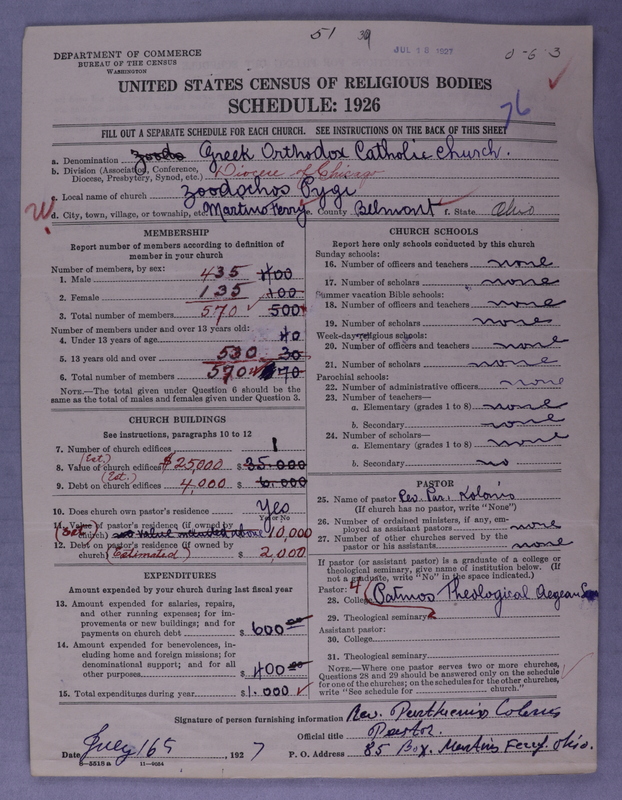 51 30
JUL 18 1927
0-6-3
DEPARTMENT OF COMMERCE
BUREAU OF THE CENSUS
WASHINGTON
UNITED STATES CENSUS OF RELIGIOUS BODIES
SCHEDULE: 1926
76
FILL OUT A SEPARATE SCHEDULE FOR EACH CHURCH. SEE INSTRUCTIONS ON THE BACK OF THIS SHEET
a. Denomination Greek Orthodox Catholic Church.
b. Division (Association, Conference, Diocese, Presbytery, Synod, etc.) Diocese of Chicago
c. Local name of church Zoodochos Pygi
d. City, town, village, or township, etc. Martins Ferry e. County Belmont f. State Ohio
MEMBERSHIP
Report number of members according to definition of
member in your church
Number of members, by sex:
1. Male 435 400
2. Female 135 100
3. Total number of members 570 500
Number of members under and over 13 years old:
4. Under 13 years of age 40
5. 13 years old and over 530 30
6. Total number of members 570 70
NOTE.—The total given under Question 6 should be the
same as the total of males and females given under Question 3.
CHURCH BUILDINGS
See instructions, paragraphs 10 to 12
7. Number of church edifices 1
(Est.)
8. Value of church edifices $25,000 35.000
(Est.)
9. Debt on church edifices 4,000 6.000
10. Does church own pastor's residence Yes
Yes or No
11. Value of pastor's residence (if owned by
church) (Est. no value included above 10,000
12. Debt on pastor's residence (if owned by
church) (Estimated) $ 2,000
EXPENDITURES
Amount expended by your church during last fiscal year
13. Amount expended for salaries, repairs,
and other running expenses; for im-
provements or new buildings; and for
payments on church debt $ 600 00
14. Amount expended for benevolences, in-
cluding home and foreign missions; for
denominational support; and for all
other purposes $ 400 00
15. Total expenditures during year $1.000
CHURCH SCHOOLS
Report here only schools conducted by this church
Sunday schools:
16. Number of officers and teachers none
17. Number of scholars none
Summer vacation Bible schools:
18. Number of officers and teachers none
19. Number of scholars none
Week-day religious schools:
20. Number of officers and teachers none
21. Number of scholars none
Parochial schools:
22. Number of administrative officers none
23. Number of teachers—
a. Elementary (grades 1 to 8) none
b. Secondary none
24. Number of scholars—
a. Elementary (grades 1 to 8) none
b. Secondary no
PASTOR
25. Name of pastor Rev. Par. Kolonis
(If church has no pastor, write "None")
26. Number of ordained ministers, if any, em-
ployed as assistant pastors none
27. Number of other churches served by the
pastor or his assistants none
If pastor (or assistant pastor) is a graduate of a college or
theological seminary, give name of institution below. (If
not a graduate, write "No" in the space indicated.)
Pastor: 4
28. College Patmos Theological Aegean
29. Theological seminary
Assistant pastor:
30. College
31. Theological seminary
NOTE.—Where one pastor serves two or more churches,
Questions 28 and 29 should be answered only on the schedule
for one of the churches; on the schedules for the other churches,
write "See schedule for church."
Signature of person furnishing information Rev. Parthenios Colonis
Official title Pastor.
Date July 16th, 1927 P. O. Address 85 Box. Martins Ferry. Ohio.
8-5518a 11-9054